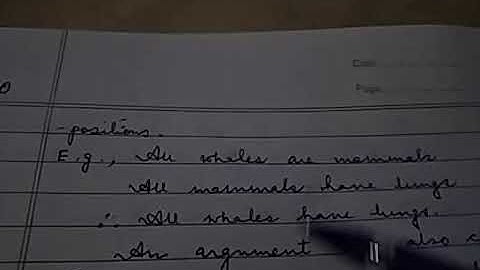 Date
Page
-positions.
E.g., All whales are mammals
All mammals have lungs
∴ All whales have lungs.
An argument also